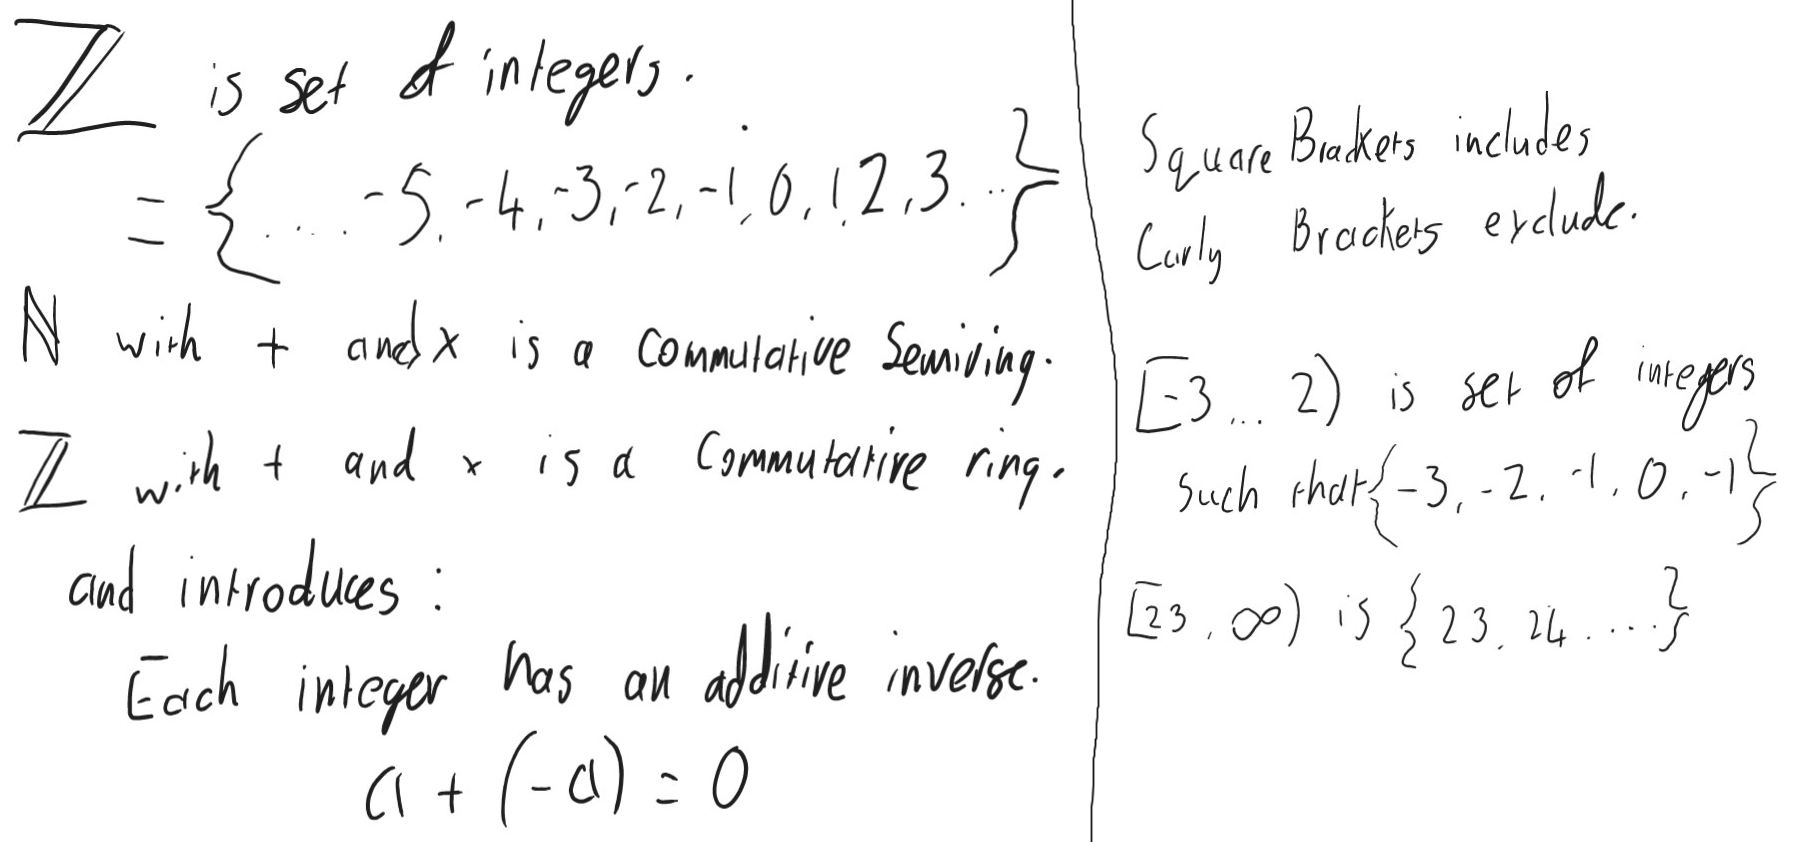 ℤ is set of integers.
= {.... -5, -4, -3, -2, -1, 0, 1, 2, 3...}
ℕ with + and x is a Commutative Semiring.
ℤ with + and x is a Commutative ring.
and introduces:
Each integer has an additive inverse.
a + (-a) = 0
Square Brackets includes
Curly Brackets exclude.
[-3... 2) is set of integers
Such that {-3, -2, -1, 0, -1}
[23, ∞) is {23, 24....}